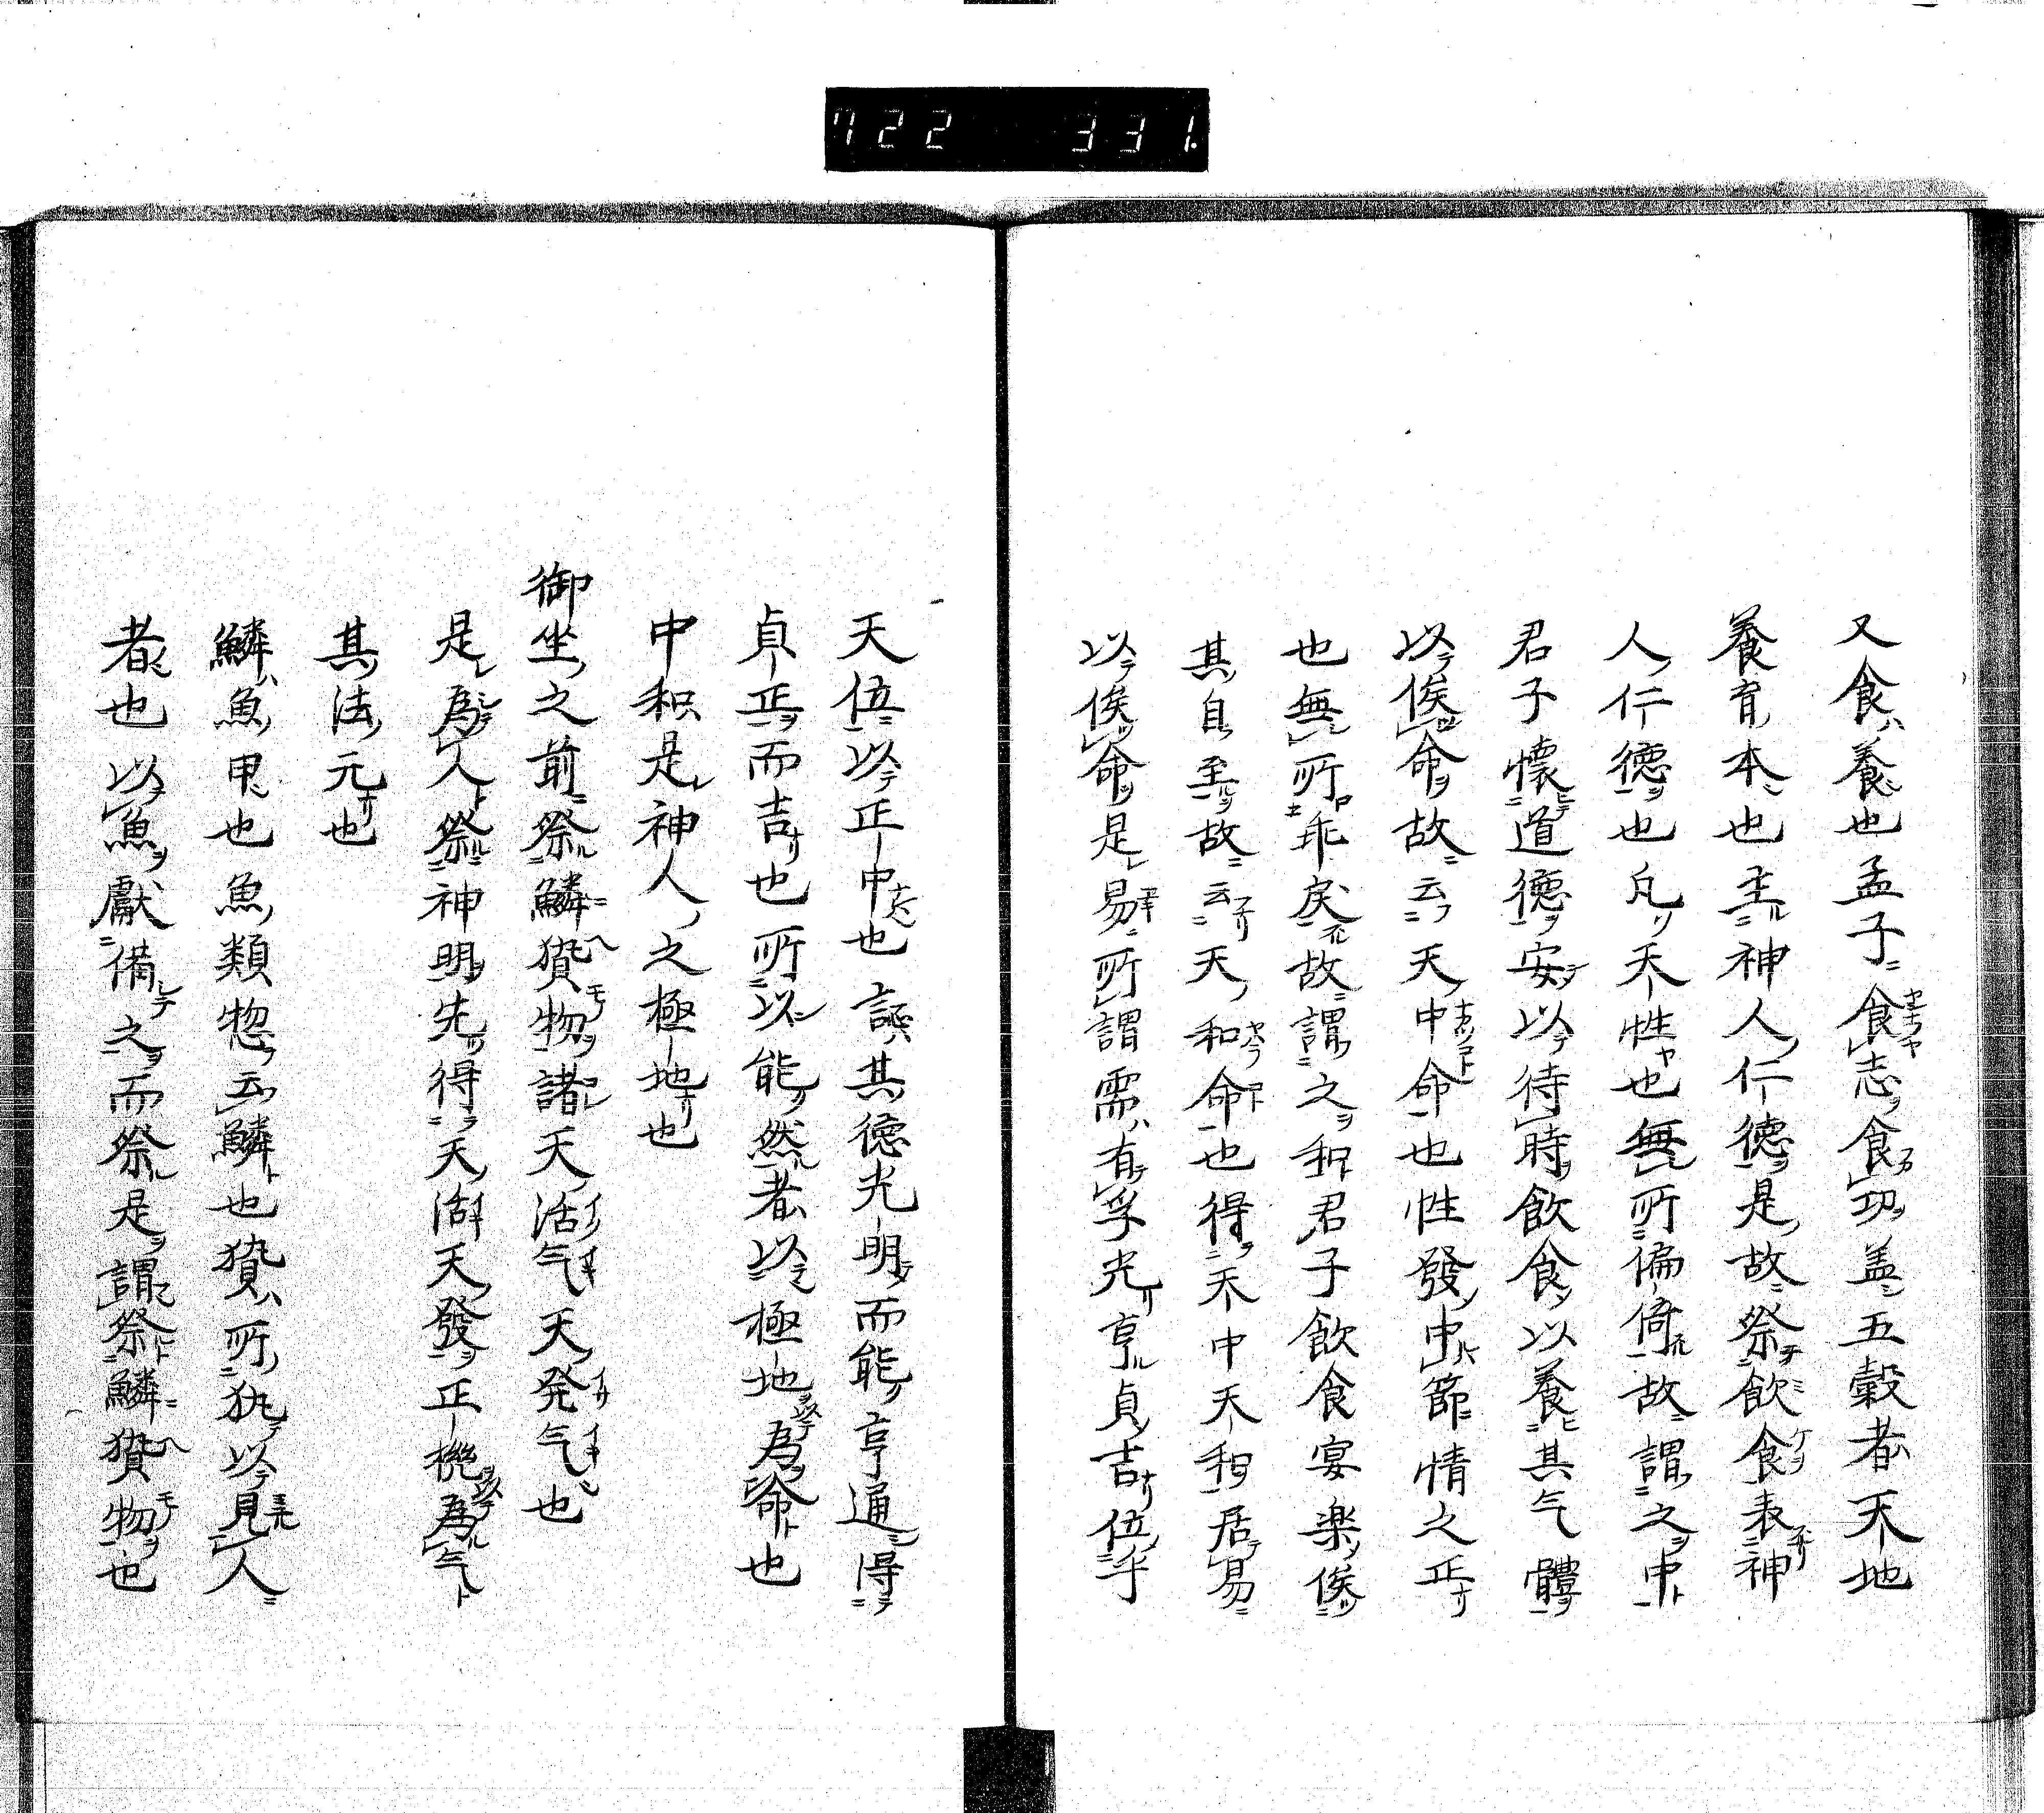 722 331.
又食養也孟子食志食功盖五穀者天地
養育本也主神人仁德是故祭飲食表神
人仁德也凡天性也無所偏倚故謂之中
君子懷道德安以待時飲食以養其气體
以俟命故云天中命也性發中節情之正
也無所乖戻故謂之和君子飲食宴楽俟
其自至故云天和命也得天中天和居易
以俟命是易所謂需有孚光亨貞吉位乎
天位以正中也言其德光明而能亨通得
貞正而吉也所以能然者以極地為命也
中和是神人之極地也
御坐之前祭鱗贄物諸天活气天発气也
是為人祭神明先得天活天發正機為气
其法元也
鱗魚甲也魚類惣云鱗也贄所执以見人
者也以魚獻備之而祭是謂祭鱗贄物也